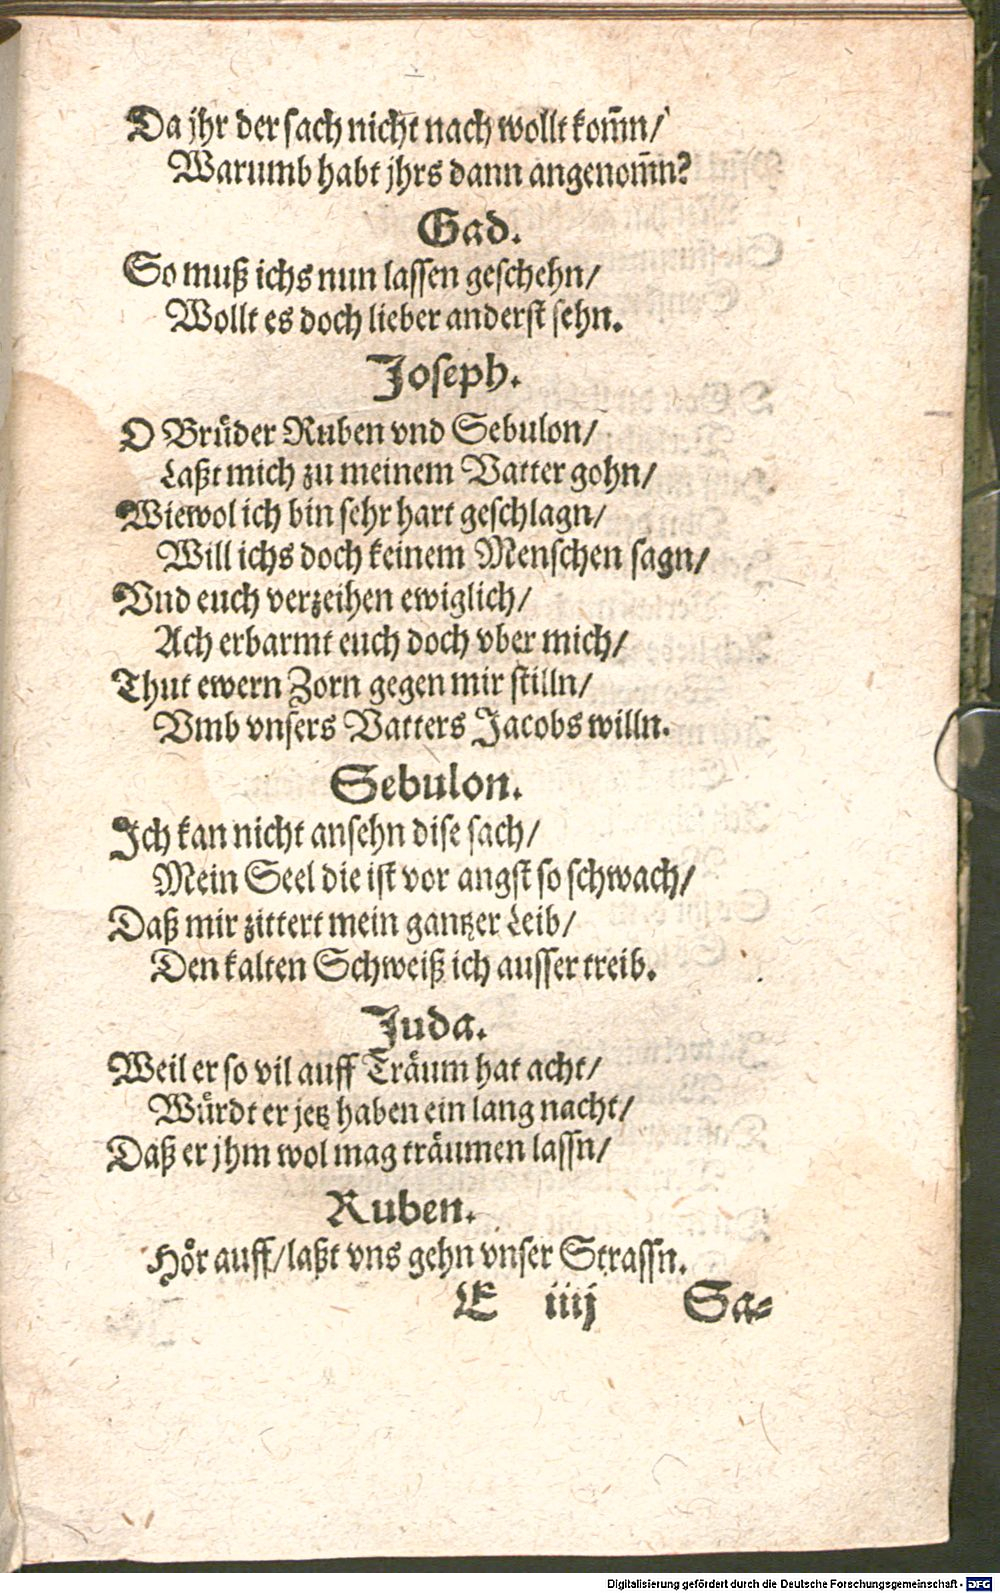 Da jhr der sach nicht nach wollt kom̄n/
Warumb habt jhrs dann angenom̄n?
Gad.
So muß ichs nun lassen geschehn/
Wollt es doch lieber anderst sehn.
Joseph.
O Bruͤder Ruben vnd Sebulon/
Laßt mich zu meinem Vatter gohn/
Wiewol ich bin sehr hart geschlagn/
Will ichs doch keinem Menschen sagn/
Vnd euch verzeihen ewiglich/
Ach erbarmt euch doch vber mich/
Thut ewern Zorn gegen mir stilln/
Vmb vnsers Vatters Jacobs willn.
Sebulon.
Ich kan nicht ansehn dise sach/
Mein Seel die ist vor angst so schwach/
Daß mir zittert mein gantzer Leib/
Den kalten Schweiß ich ausser treib.
Juda.
Weil er so vil auff Traͤum hat acht/
Wuͤrdt er jetz haben ein lang nacht/
Daß er jhm wol mag traͤumen lassn/
Ruben.
Hoͤr auff/ laßt vns gehn vnser Strassn.
E iiij Sa-
Digitalisierung gefördert durch die Deutsche Forschungsgemeinschaft - DFG